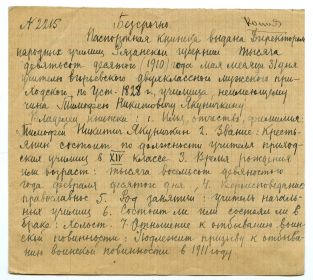 № 2215 Безсрочно Копия
Паспортная книжка выдана Директором
народных училищ Рязанской губернии тысяча
девятьсот десятого (1910) года мая месяца 31 дня
учителю двухклассного мужского при-
ходского, по Уст. 1828 г., училища, неимеющему
чина Тимофею Никитовичу Якуничкину
Владелец книжки: 1. Имя, отчество, фамилия
Тимофей Никитич Якуничкин 2. Звание: Кресть-
янин состоит по должности учителя приход-
ския училищ в XIV классе 3. Время рождения
или возраст: тысяча восемьсот девяностого
года февраля десятого дня, 4. Вероисповедание
православное 5. Род занятий: учитель началь-
ных училищ 6. Состоит ли или состоял ли в
браке: Холост. 7. Отношение к отбыванию воин-
ской повинности: Подлежит призыву к отбыва-
нию воинской повинности в 1911 году